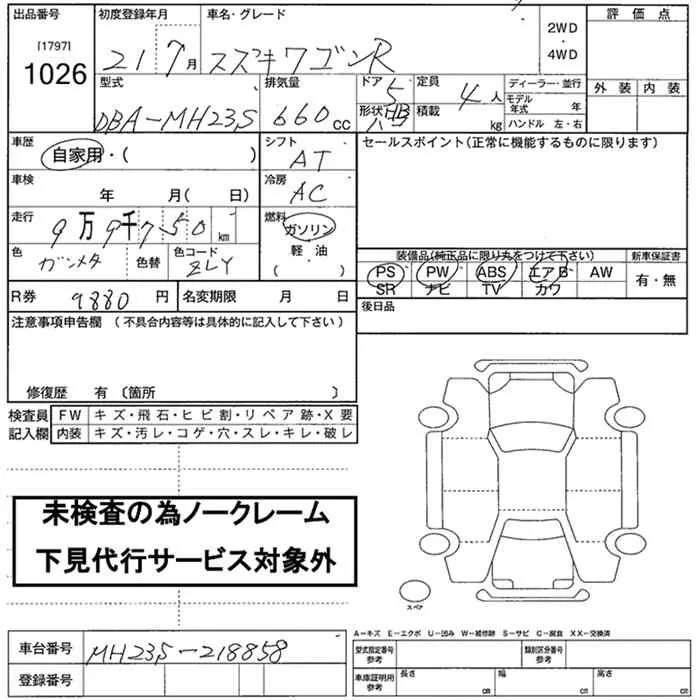 出品番号 初度登録年月 車名・グレード 評価点
[1797]
1026
21 7月 スズキワゴンR 2WD
・
4WD
型式 排気量 ドア 定員 ディーラー・並行 外装 内装
DBA-MH23S 660cc 5 4人 モデル年式 年
形状 HB 積載 kg ハンドル 左・右
車歴 自家用・( ) シフト AT セールスポイント(正常に機能するものに限ります)
車検 年 月( 日) 冷房 AC
走行 9万9千750km 燃料 ガソリン
軽・油
( )
色 ガンメタ 色替 色コード ZLY
装備品(純正品に限り丸をつけて下さい) 新車保証書
PS PW ABS エアB AW 有・無
SR ナビ TV カワ
R券 9880円 名変期限 月 日 後日品
注意事項申告欄(不具合内容等は具体的に記入して下さい)
修復歴 有〔箇所 〕
検査員 FW キズ・飛石・ヒビ割・リペア跡・X要
記入欄 内装 キズ・汚レ・コゲ・穴・スレ・キレ・破レ
未検査の為ノークレーム
下見代行サービス対象外
スペア
A-キズ E-エクボ U-凹み W-補修跡 S-サビ C-腐食 XX-交換済
車台番号 MH23S-218858
登録番号
型式指定番号 参考 類別区分番号 参考
車庫証明用 参考 長さ cm 幅 cm 高さ cm